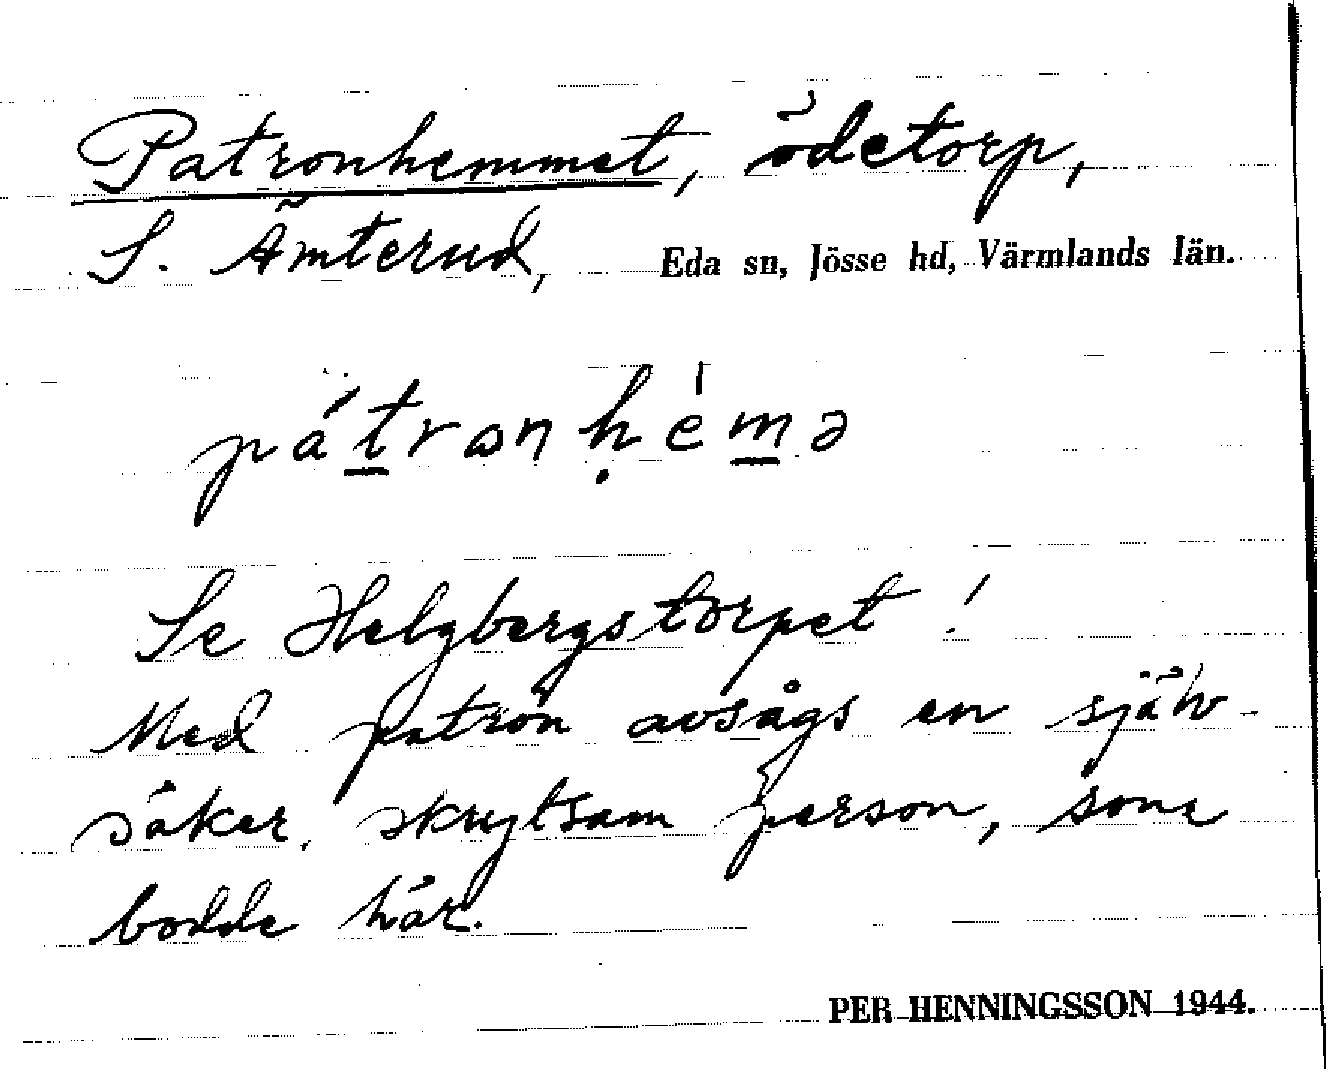 Patronhemmet, ödetorp,
S. Ämterud, Eda sn, Jösse hd, Värmlands län.
pátronḥémə
Se Helgbergstorpet!
Med patron avsågs en själv-
säker, skrytsam person, som
bodde här.
PER HENNINGSSON 1944.